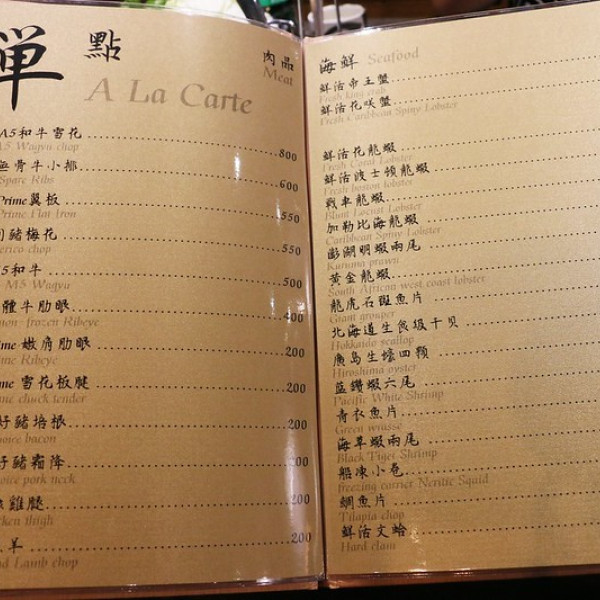 單點
A La Carte
肉品
Meat
A5和牛雪花 800
A5 Wagyu chop
無骨牛小排 600
Spare Ribs
Prime翼板 550
Prime Flat Iron
豬梅花 550
chop
5和牛 500
M5 Wagyu
體牛肋眼 400
non-frozen Ribeye
嫩肩肋眼 200
Ribeye
雪花板腱 200
chuck tender
好豬培根 200
bacon
好豬霜降 200
pork neck
雞腿 200
thigh
羊 200
Lamb chop
海鮮 Seafood
鮮活帝王蟹
Fresh king crab
鮮活花咲蟹
Fresh Caribbean Spiny Lobster
鮮活花龍蝦
Fresh Coral Lobster
鮮活波士頓龍蝦
Fresh boston lobster
戰車龍蝦
Blunt Locust Lobster
加勒比海龍蝦
Caribbean Spiny Lobster
澎湖明蝦兩尾
Kuruma prawn
黃金龍蝦
South African west coast lobster
龍虎石斑魚片
Giant grouper
北海道生食級干貝
Hokkaido scallop
廣島生蠔四顆
Hiroshima oyster
藍鑽蝦六尾
Pacific White Shrimp
青衣魚片
Green wrasse
海草蝦兩尾
Black Tiger Shrimp
船凍小卷
freezing carrier Neritic Squid
鯛魚片
Tilapia chop
鮮活文蛤
Hard clam